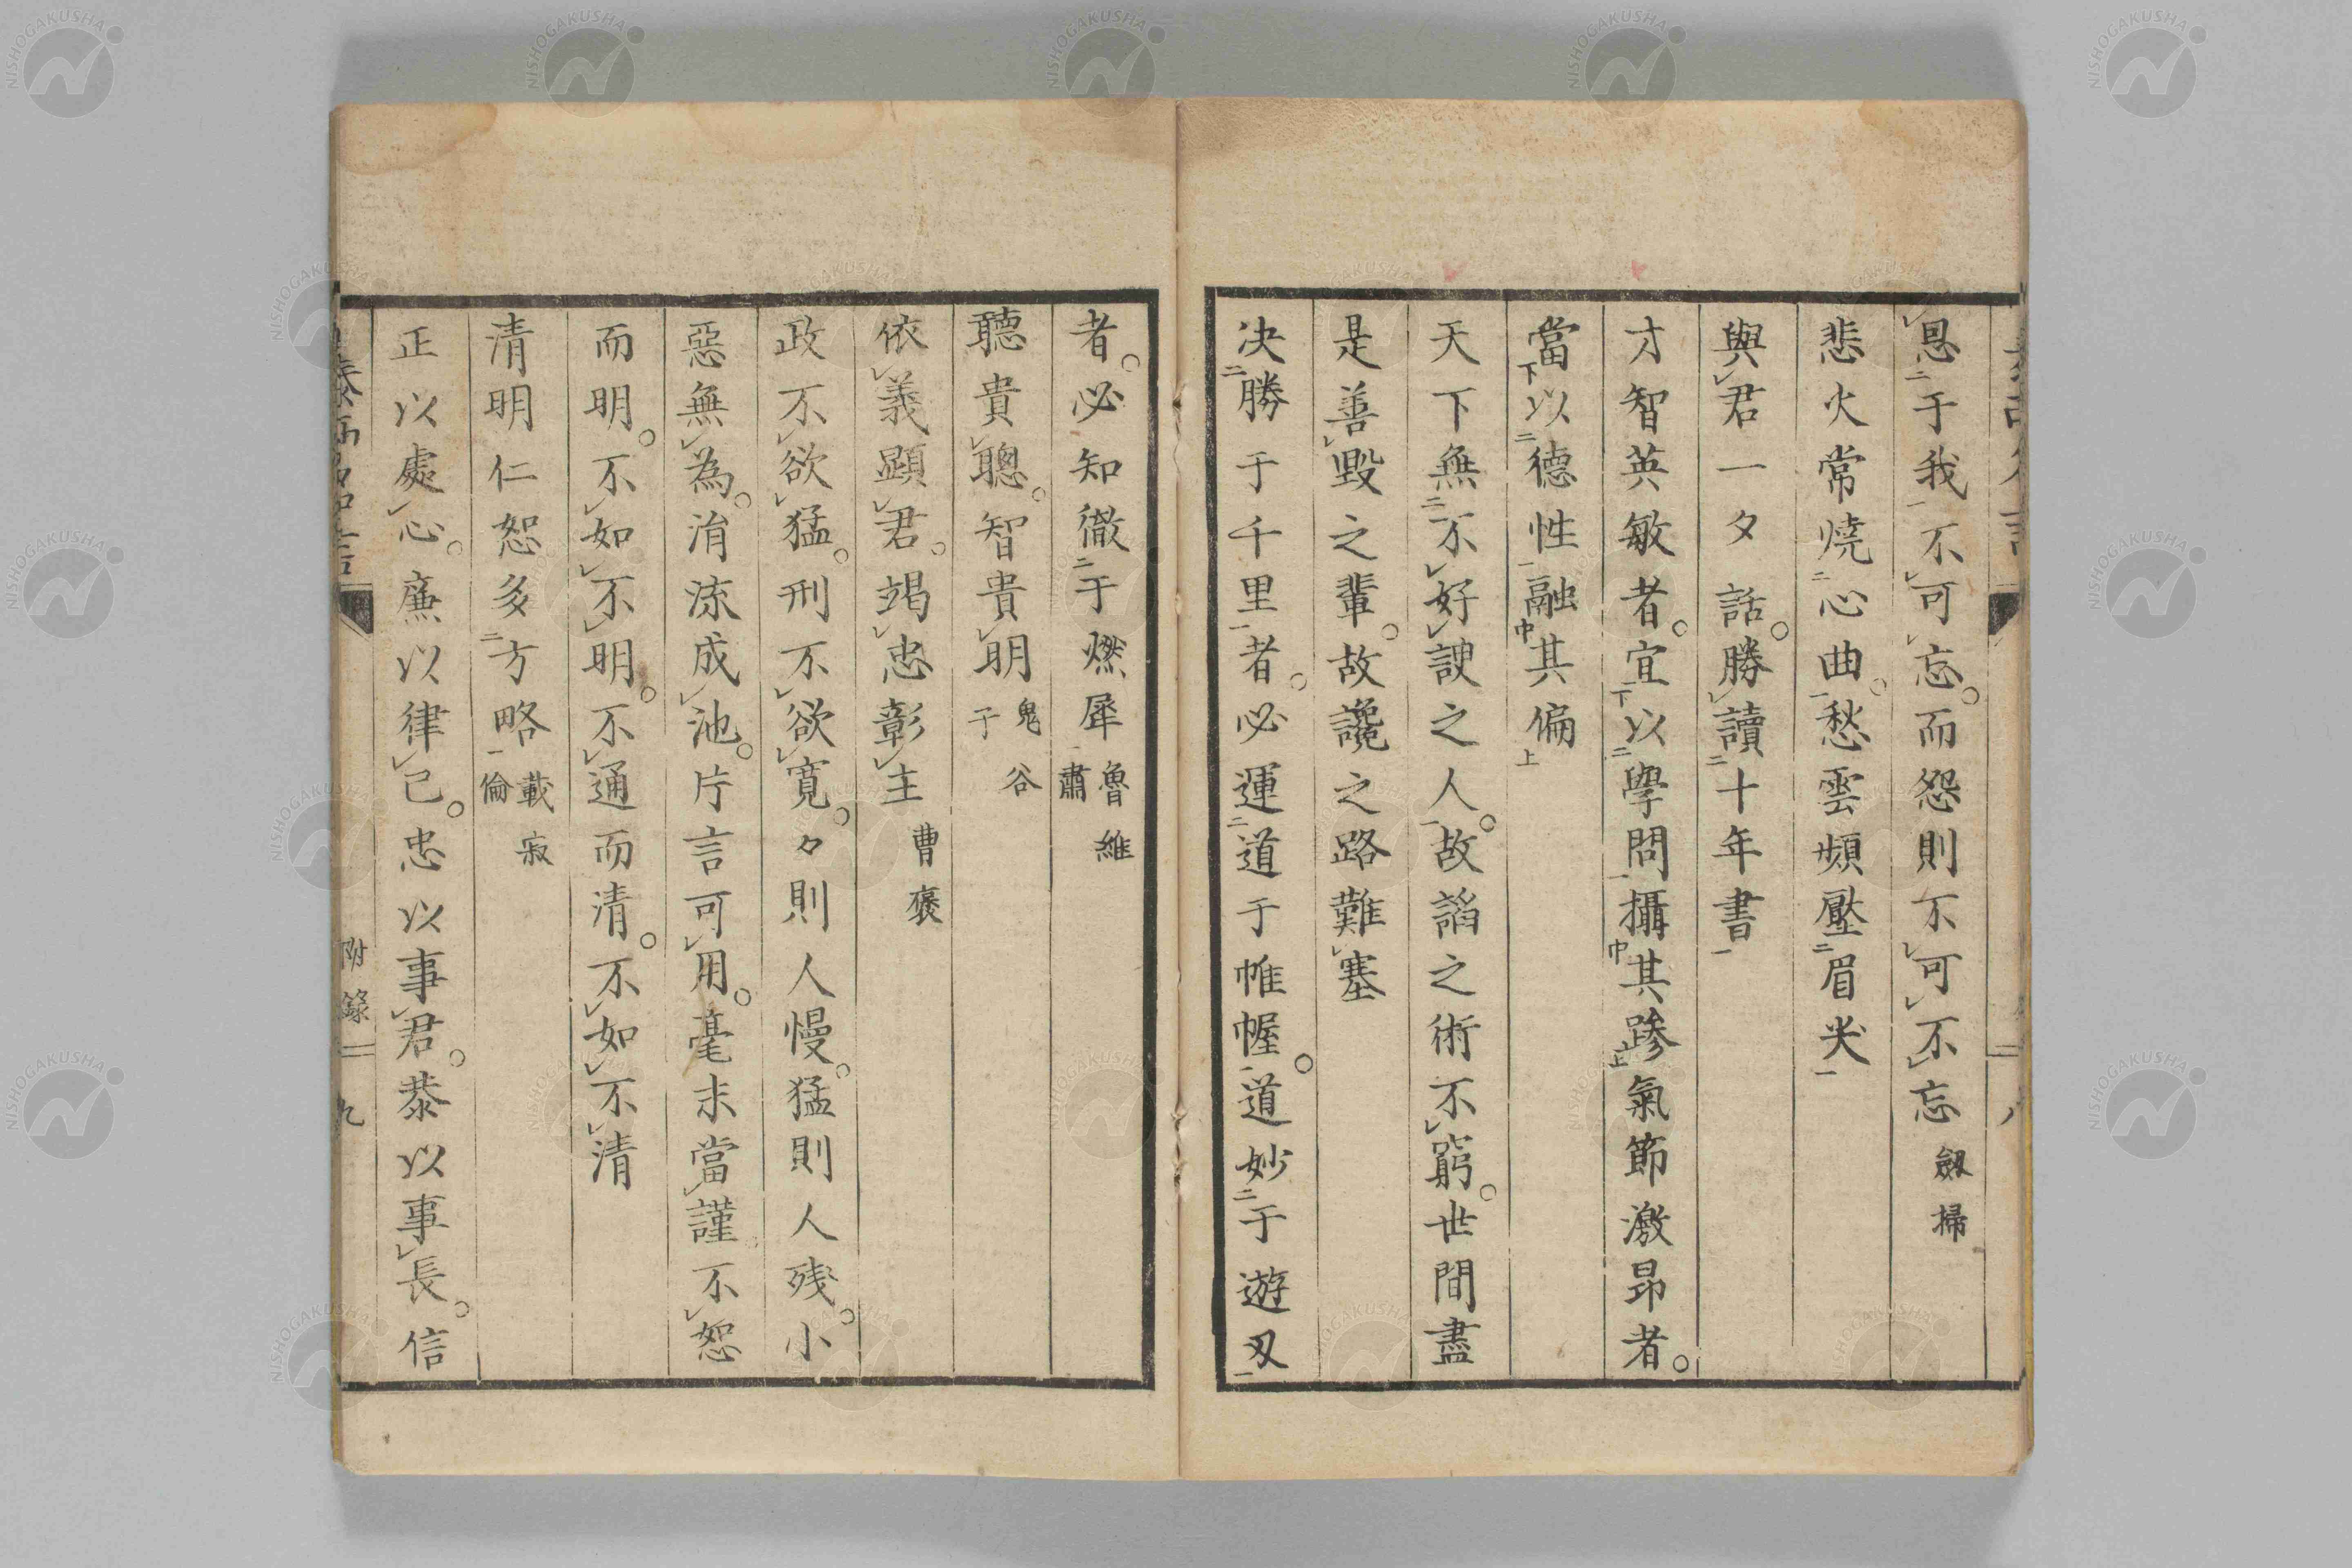 恩于我不可忘。而怨則不可不忘 劔掃
悲火常燒心曲。愁雲頻壓眉尖
與君一夕話。勝讀十年書
才智英敏者。宜以學問攝其躁氣節激昂者。
當以德性融其偏
天下無不好諛之人。故諂之術不窮。世間盡
是善毀之輩。故讒之路難塞
决勝于千里者。必運道于帷幄。道妙于遊刃
者。必知徹于燃犀 魯維肅
聽貴聰。智貴明 鬼谷子
依義顯君。竭忠彰主 曹褒
政不欲猛。刑不欲寬。々則人慢。猛則人殘。小
惡無為。涓流成池。片言可用。毫末當謹。不恕
而明。不如不明。不通而清。不如不清
清明仁恕多方略 載寂倫
正以處心。廉以律己。忠以事君。恭以事長。信
附錄 二 九
NISHOGAKUSHA